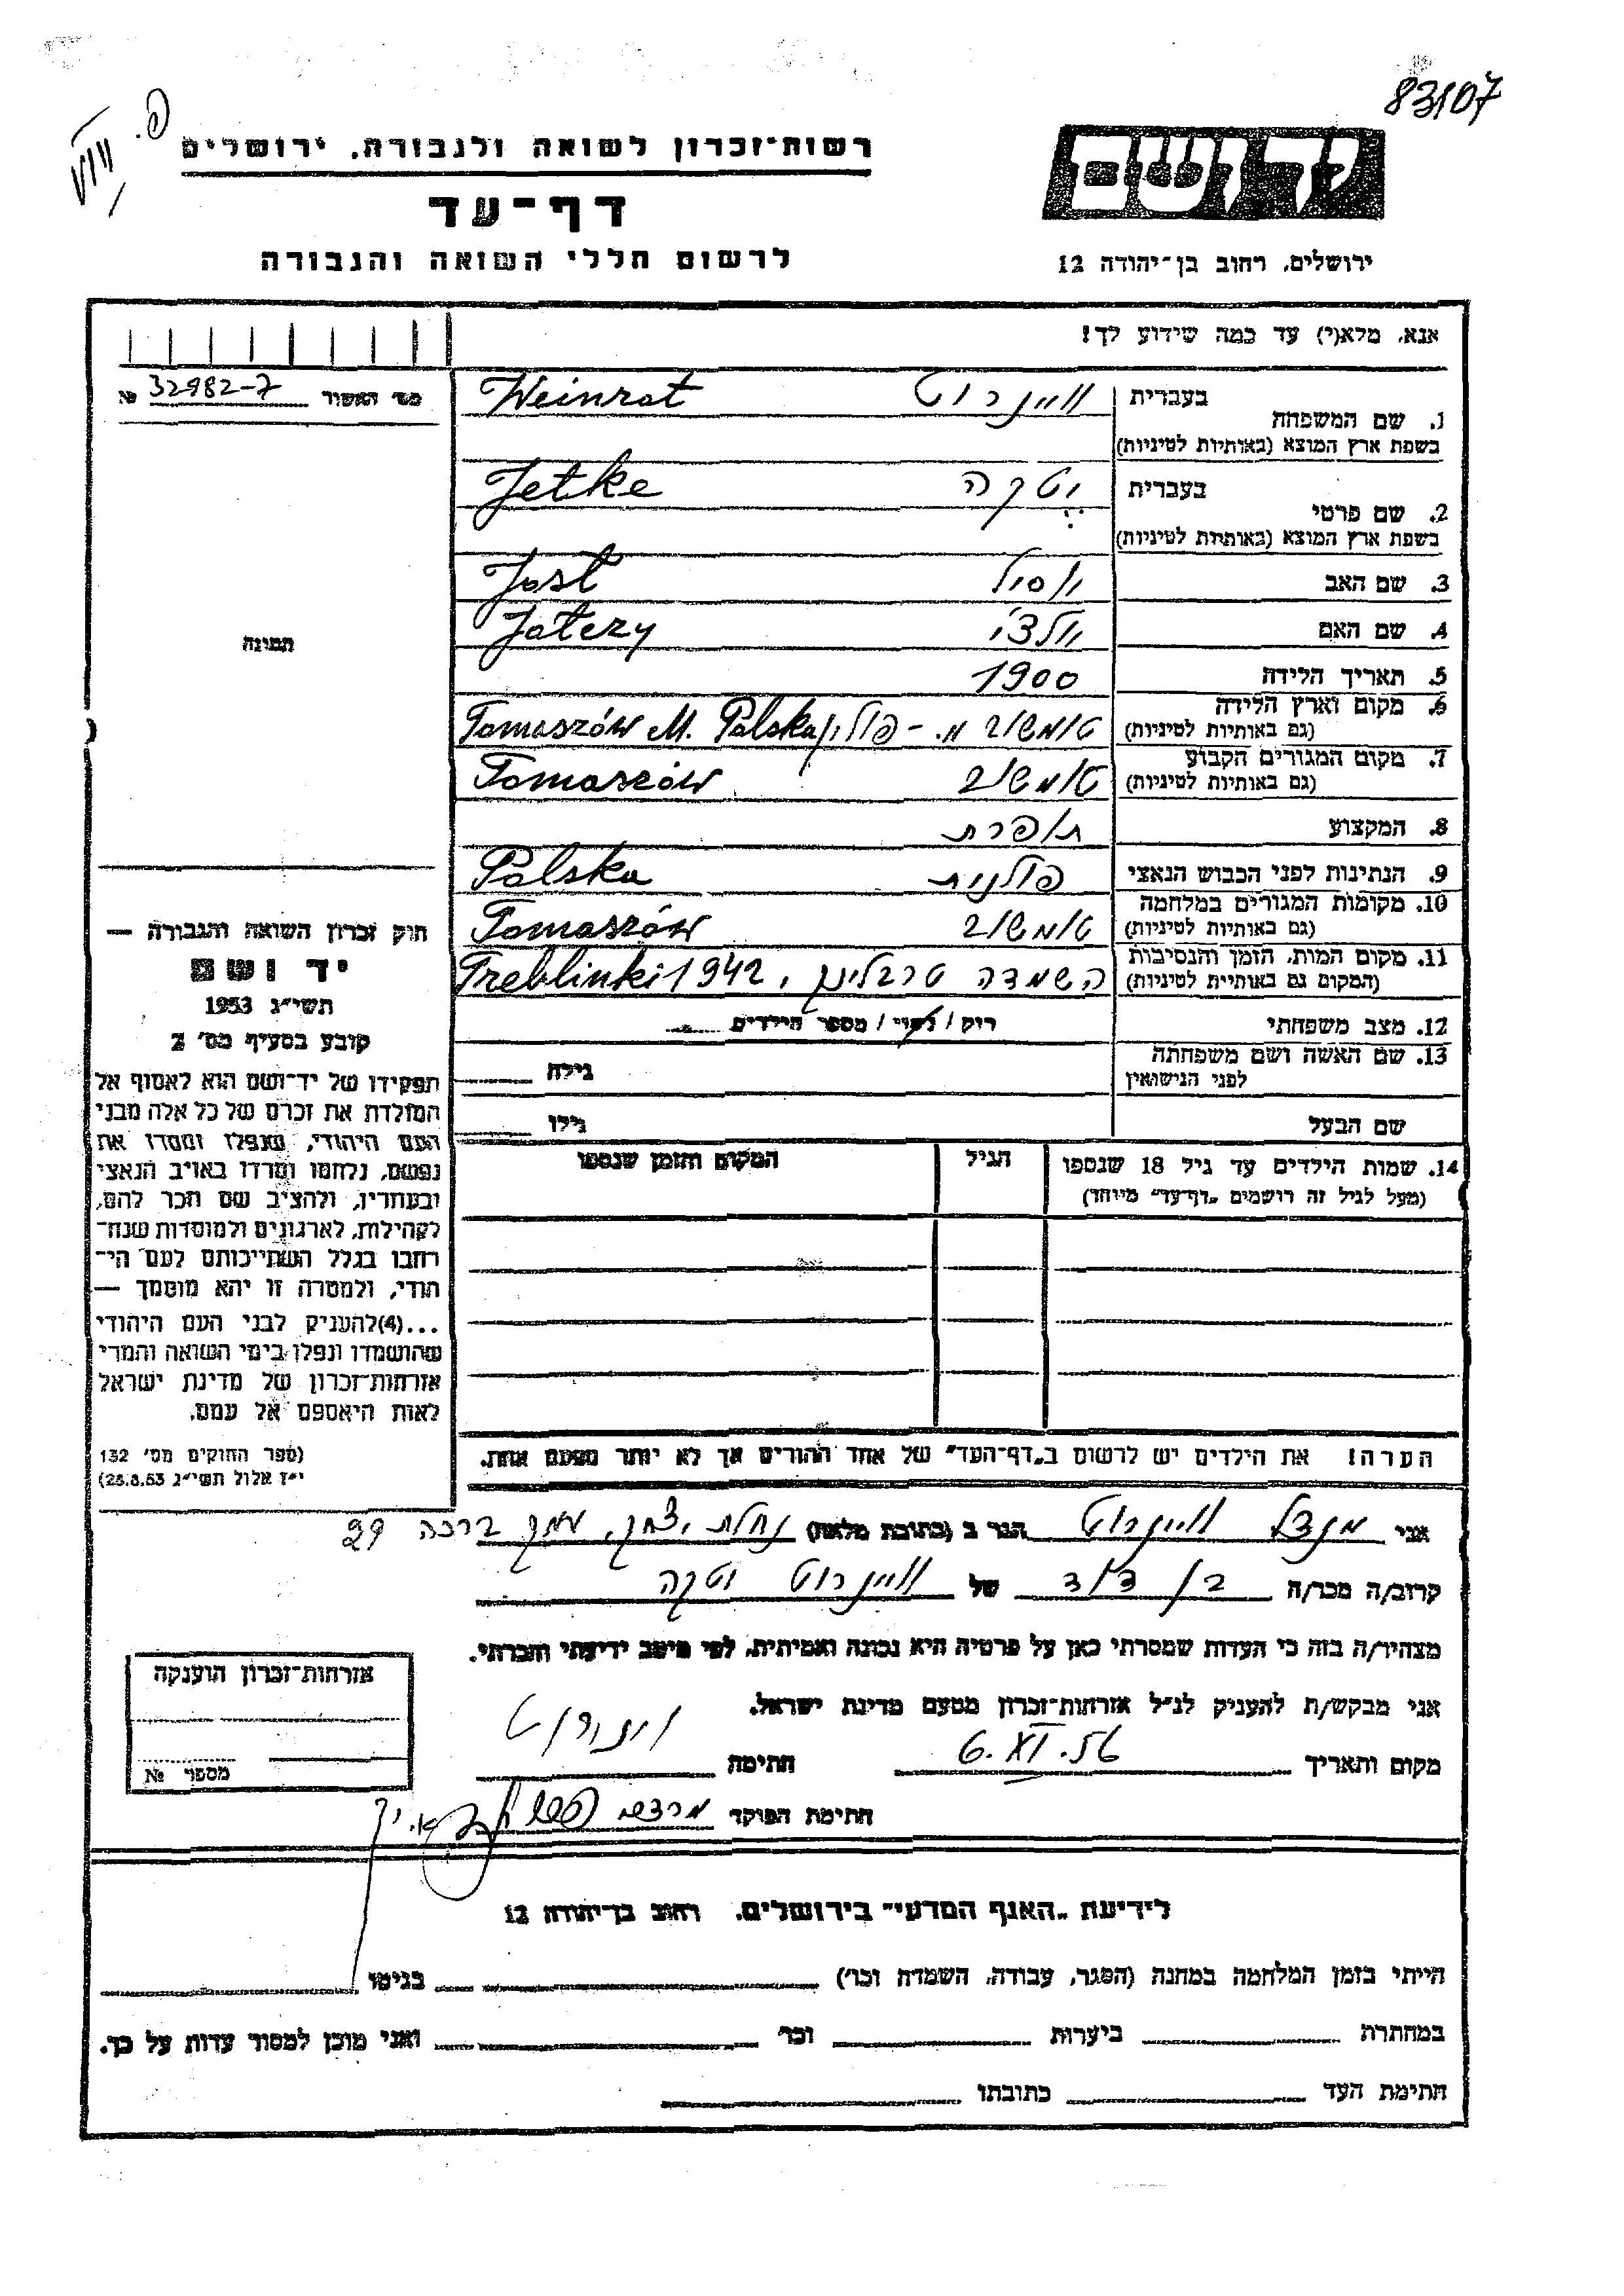 83107
רשות-זכרון לשואה ולגבורה, ירושלים
דף-עד
לרשום חללי השואה והגבורה
יד ושם
ירושלים, רחוב בן-יהודה 12
אנא, מלא(י) עד כמה שידוע לך!
מס' האשור 32982-7 №
1. שם המשפחה בעברית ווינרוט
בשפת ארץ המוצא (באותיות לטיניות) Weinrat
2. שם פרטי בעברית יטקה
בשפת ארץ המוצא (באותיות לטיניות) Jetke
3. שם האב Josl
4. שם האם
5. תאריך הלידה 1900
6. מקום וארץ הלידה (גם באותיות לטיניות) טומשוב מ. - פולין Tomaszów M. Polska
7. מקום המגורים הקבוע (גם באותיות לטיניות) טומשוב Tomaszów
8. המקצוע תופרת
9. הנתינות לפני הכבוש הנאצי פולנית Polska
10. מקומות המגורים במלחמה (גם באותיות לטיניות) טומשוב Tomaszów
11. מקום המות, הזמן והנסיבות (המקום גם באותיות לטיניות) השמדה טרבלינקי, Treblinki 1942
12. מצב משפחתי רוק / נשוי / מספר הילדים
13. שם האשה ושם משפחתה לפני הנישואין גילה
שם הבעל גילו
14. שמות הילדים עד גיל 18 שנספו הגיל המקום והזמן שנספו
(מעל לגיל זה רושמים "דף-עד" מיוחד)
הערה! את הילדים יש לרשום ב"דף-העד" של אחד ההורים אך לא יותר מפעם אחת.
תמונה
חוק זכרון השואה והגבורה —
יד ושם
תשי"ג 1953
קובע בסעיף מס' 2
תפקידו של יד-ושם הוא לאסוף אל
המולדת את זכרם של כל אלה מבני
העם היהודי, שנפלו ומסרו את
נפשם, נלחמו ומרדו באויב הנאצי
ובעוזריו, ולהציב שם וזכר להם,
לקהילות, לארגונים ולמוסדות שנח-
רבו בגלל השתייכותם לעם הי-
הודי, ולמטרה זו יהא מוסמך —
...(4) להעניק לבני העם היהודי
שהושמדו ונפלו בימי השואה והמרי
אזרחות-זכרון של מדינת ישראל
לאות היאספם אל עמם.
(ספר החוקים מס' 132
י"ז אלול תשי"ג 28.8.53)
אני מנדל ווינרוט הגר ב (כתובת מלאה) נחלת יצחק, עמק ברכה 29
קרוב/ה מכר/ה בן דוד של ווינרוט יטקה
מצהיר/ה בזה כי העדות שמסרתי כאן על פרטיה היא נכונה ואמיתית, לפי מיטב ידיעתי והכרתי.
אני מבקש/ת להעניק לנ"ל אזרחות-זכרון מטעם מדינת ישראל.
מקום ותאריך 6.XI.56 חתימה
חתימת הפוקד
אזרחות-זכרון הוענקה
מספר №
לידיעת "האגף המדעי" בירושלים, רחוב בן-יהודה 12
הייתי בזמן המלחמה במחנה (הסגר, עבודה, השמדה וכו') בגיטו
במחתרת ביערות וכו' ואני מוכן למסור עדות על כך.
חתימת העד כתובתו